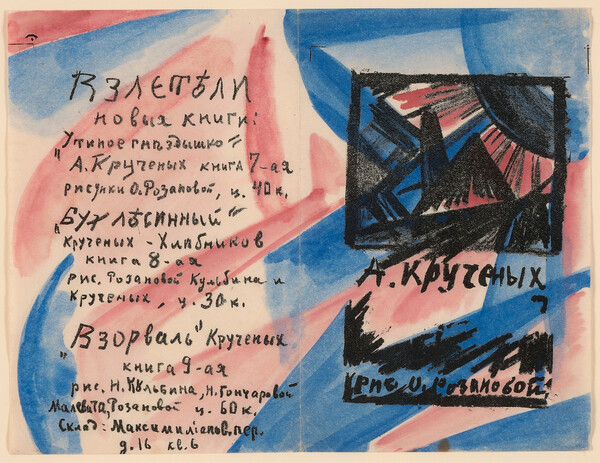 Взлетѣли
новыя книги:
„Утиное гнѣздышко"
А. Крученых книга 7-ая
рисунки О. Розановой, ц. 40 к.
„Бух лѣсинный"
Крученых - Хлѣбников
книга 8-ая
рис. Розановой Кульбина и
Крученых, ц. 30 к.
„Взорваль" Крученых
книга 9-ая
рис. Н. Кульбина, Н. Гончаровой
Малевича, Розановой ц. 60 к.
Склад: Максимилiанов. пер.
д. 16 кв. 6
А. Крученых
рис О. Розановой